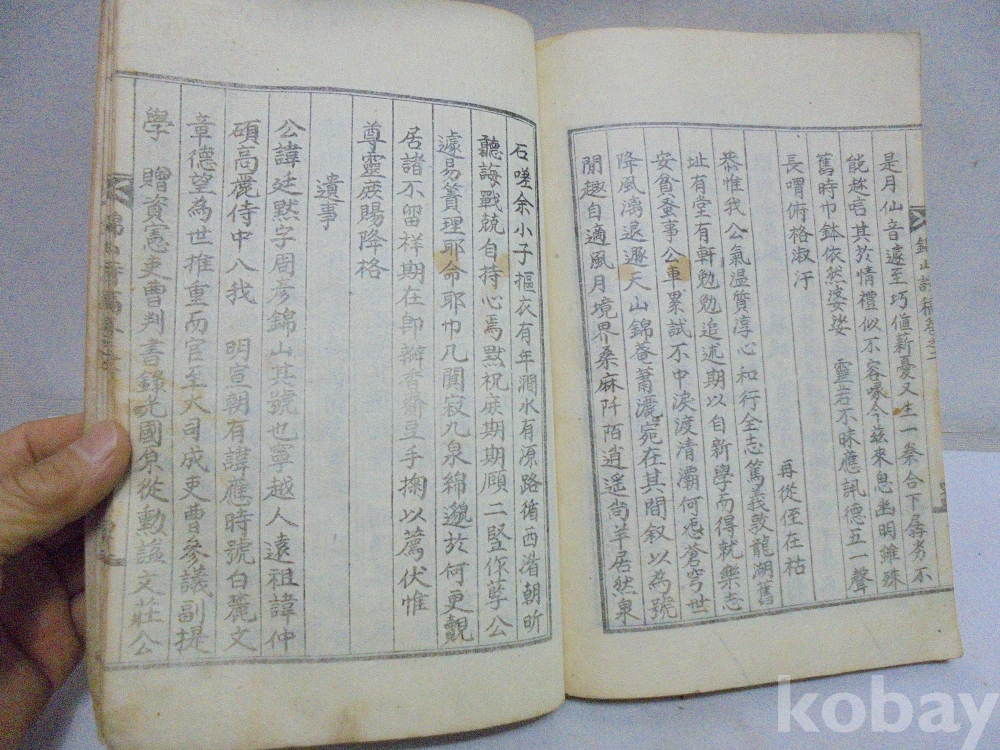 是月仙音遽至巧值新憂又生一秦合下孱劣不
能趍唁其於情禮似不容喙今玆來思幽明雖殊
舊時巾鉢依然婆娑 靈若不昧應訊德五一聲
長喟俯格淑汙
再從侄在枯
恭惟我公氣溫質淳心和行全志篤義敦龍湖舊
址有堂有軒勉勉追述期以自新學而得就樂志
安貧蚤事公車累試不中淚度清灞何恙蒼穹世
降風漓退遯天山錦菴蕭灑宛在其間叙以為號
閒趣自適風月境界桑麻阡陌逍遥尚羊居然泉
錦山詩稿卷之二
石嗟余小子摳衣有年澗水有源路循西湝朝昕
聽誨戰兢自持心焉默祝庻期期頤二竪作孽公
遽易簀理耶命耶巾几閴寂九泉綿邈於何更覿
居諸不留祥期在卽辦香齋豆手掬以薦伏惟
尊靈庻賜降格
遺事
公諱廷默字周彦錦山其號也寧越人遠祖諱仲
碩高麗侍中八我 明宣朝有諱應時號白麓文
章德望為世推重而官至大司成吏曹參議副提
學 贈資憲吏曹判書錄光國原從勳謚文莊公